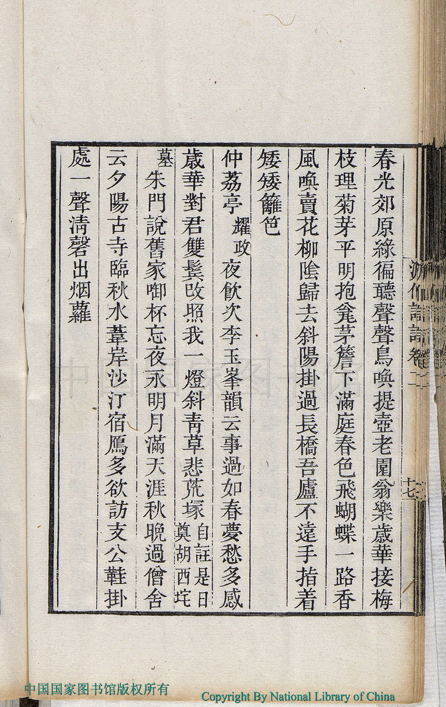 春光郊原綠徧聽聲聲鳥喚提壺老圃翁樂歲華接梅
枝理菊芽平明抱瓮茅簷下滿庭春色飛蝴蝶一路香
風喚賣花柳陰歸去斜陽掛過長橋吾廬不遠手指着
矮矮籬笆
仲荔亭耀政夜飲次李玉峯韻云事過如春夢愁多感
歲華對君雙鬢改照我一燈斜靑草悲荒塚自註是日奠胡西垞
墓朱門說舊家啣杯忘夜永明月滿天涯秋晚過僧舍
云夕陽古寺臨秋水葦岸沙汀宿鴈多欲訪支公鞋掛
處一聲淸磬出烟蘿
詩話卷
十七
中国国家图书馆
中国国家图书馆版权所有
Copyright By National Library of China